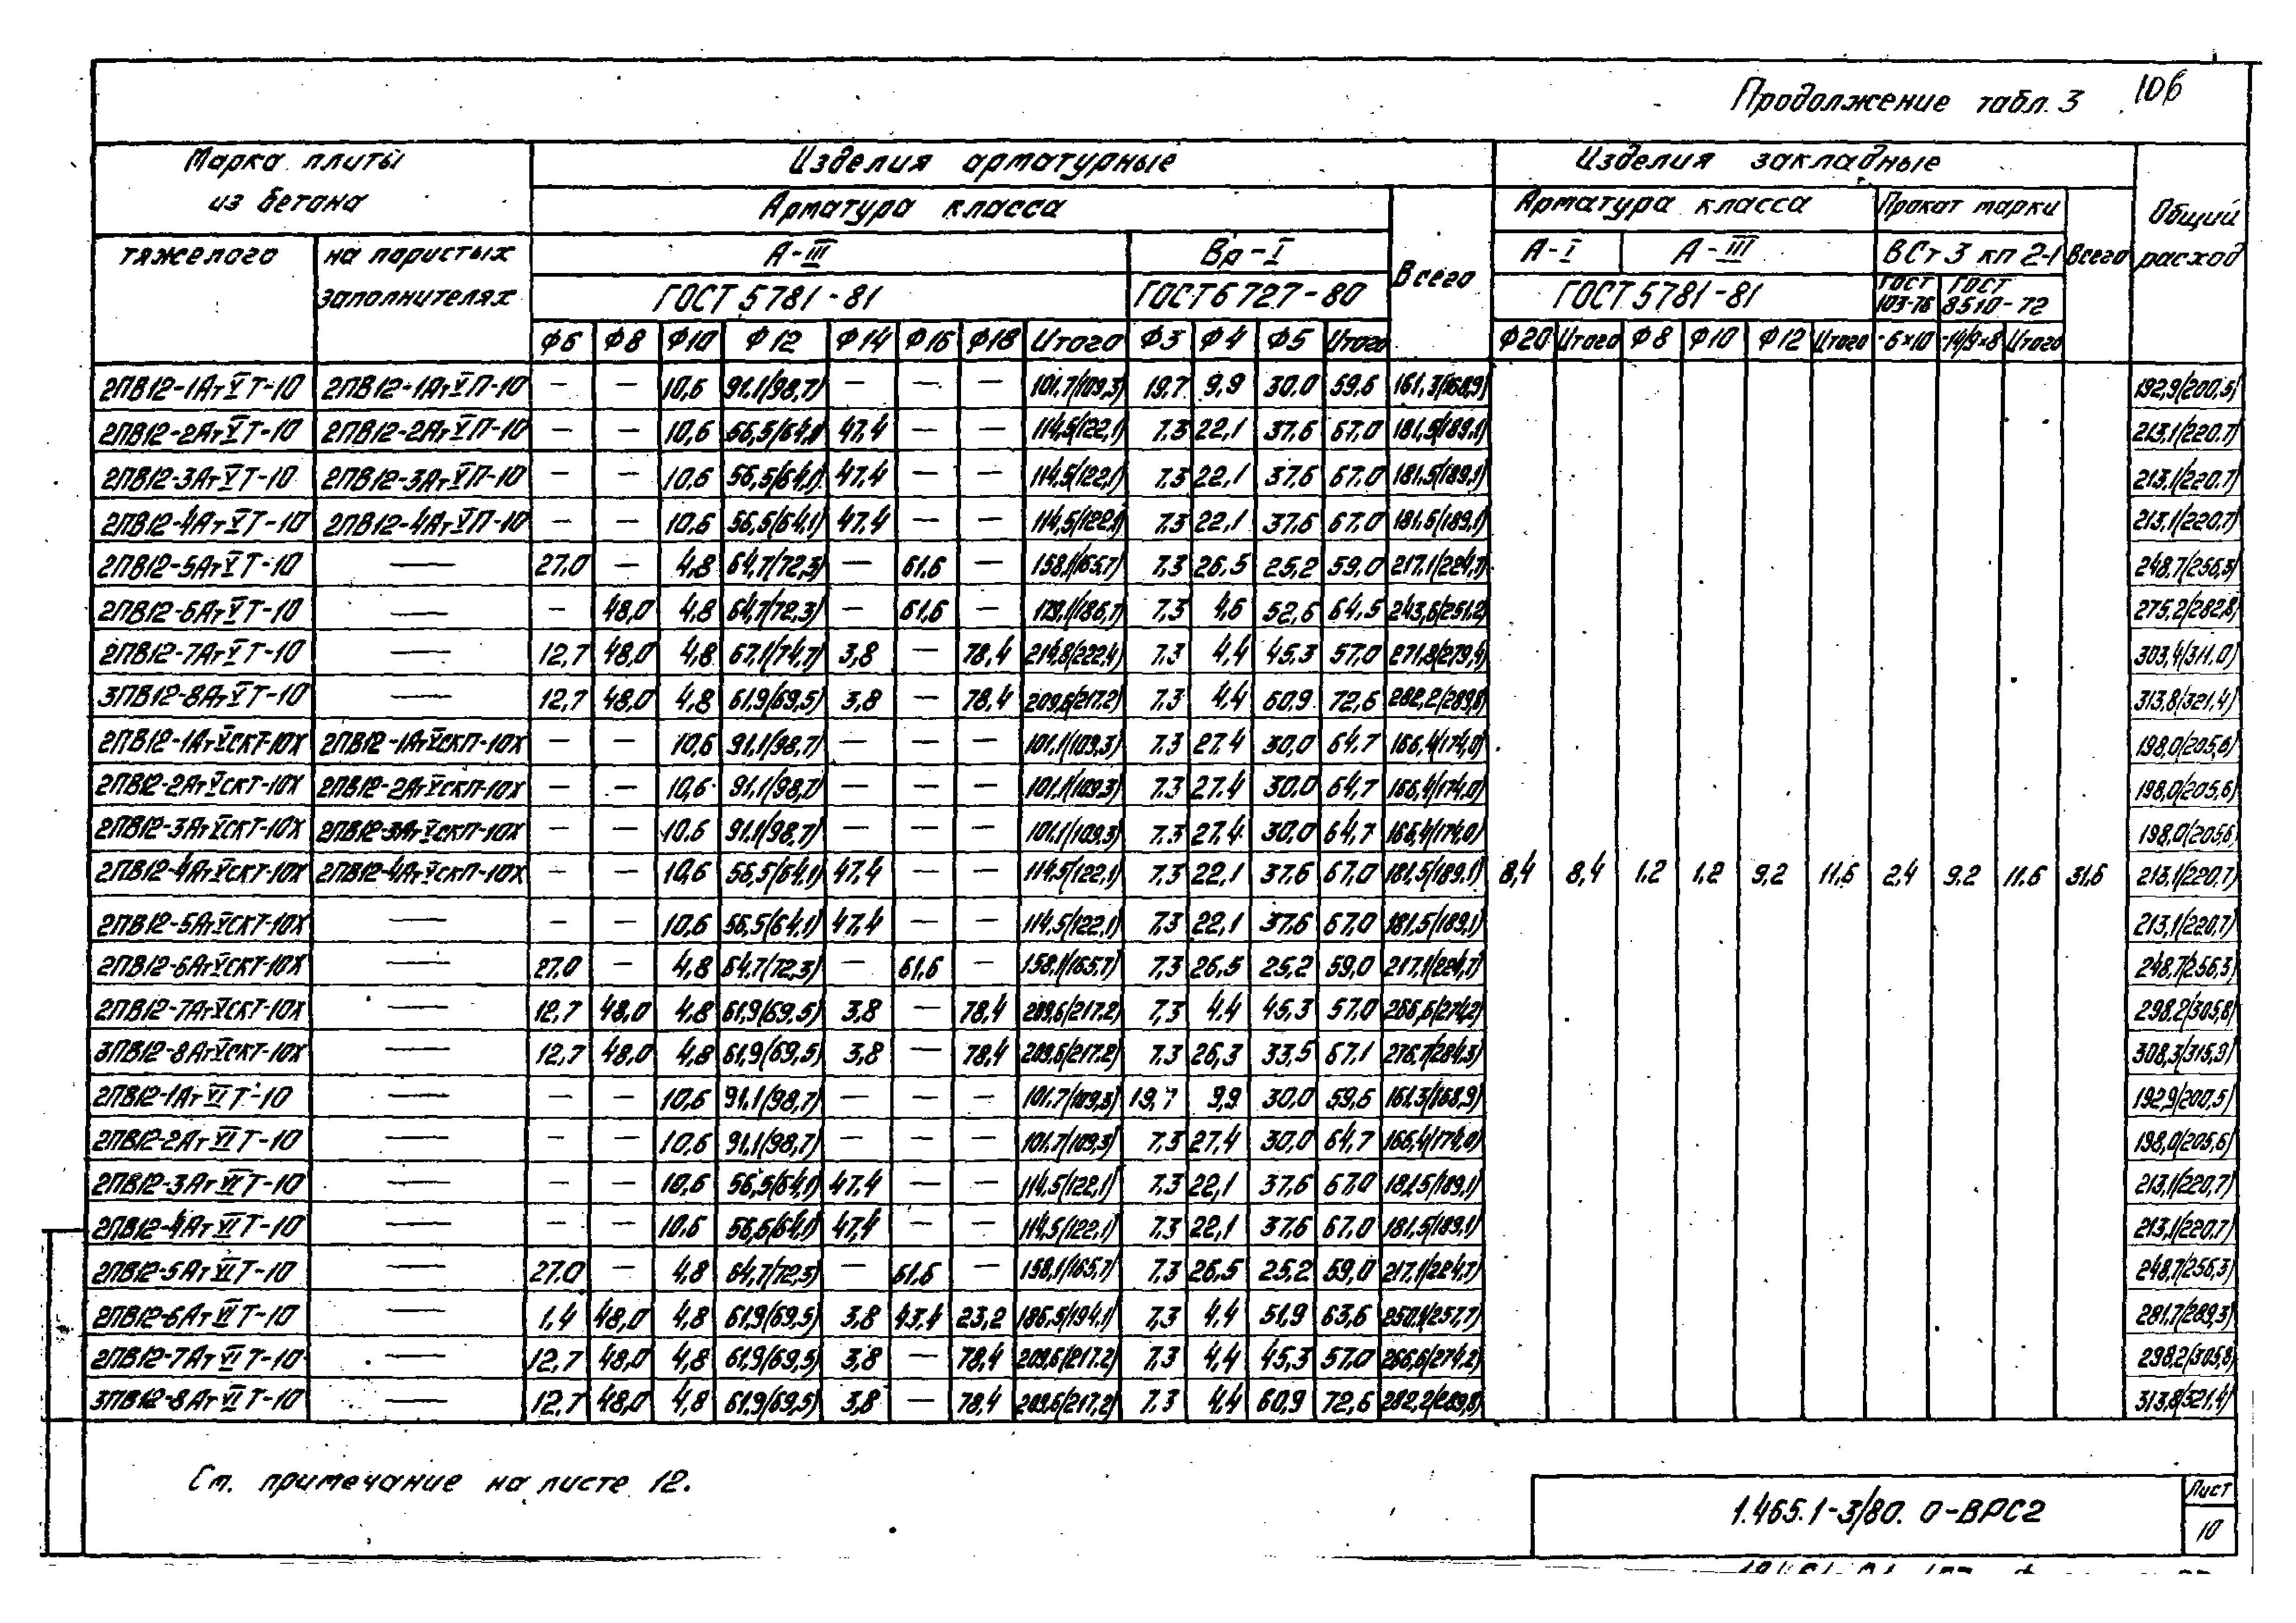 Продолжение табл. 3 106
Марка плиты из бетона | Изделия арматурные | Изделия закладные | Общий расход
Арматура класса | Всего | Арматура класса | Прокат марки | Всего
тяжелого | на пористых заполнителях | А-III | Вр-I | А-I | А-III | ВСт 3 кп 2-1
ГОСТ 5781-81 | ГОСТ 6727-80 | ГОСТ 5781-81 | ГОСТ 103-76 | ГОСТ 8510-72
Ф6 | Ф8 | Ф10 | Ф12 | Ф14 | Ф16 | Ф18 | Итого | Ф3 | Ф4 | Ф5 | Итого | Ф20 | Итого | Ф8 | Ф10 | Ф12 | Итого | -6×10 | -14/9×8 | Итого
2ПВ12-1АтVТ-10 | 2ПВ12-1АтVП-10 | — | — | 10,6 | 91.1/(98,7) | — | — | — | 101.7/(109,3) | 19.7 | 9,9 | 30.0 | 59.6 | 161.3/(168,9) | 192,9/(200,5)
2ПВ12-2АтVТ-10 | 2ПВ12-2АтVП-10 | — | — | 10,6 | 56,5/(64,1) | 47.4 | — | — | 114,5/(122,1) | 7.3 | 22,1 | 37.6 | 67.0 | 181,5/(189,1) | 213,1/(220.7)
2ПВ12-3АтVТ-10 | 2ПВ12-3АтVП-10 | — | — | 10,6 | 56,5/(64,1) | 47.4 | — | — | 114,5/(122,1) | 7.3 | 22,1 | 37.6 | 67.0 | 181.5/(189,1) | 213,1/(220.7)
2ПВ12-4АтVТ-10 | 2ПВ12-4АтVП-10 | — | — | 10,6 | 56,5/(64,1) | 47.4 | — | — | 114,5/(122,1) | 7.3 | 22,1 | 37.6 | 67.0 | 181.6/(189,1) | 213,1/(220,7)
2ПВ12-5АтVТ-10 | — | 27.0 | — | 4,8 | 64,7/(72,3) | — | 61.6 | — | 158,1/(165,7) | 7.3 | 26,5 | 25,2 | 59,0 | 217.1/(224,7) | 248,7/(256,3)
2ПВ12-6АтVТ-10 | — | — | 48,0 | 4,8 | 64,7/(72,3) | — | 61.6 | — | 179,1/(186,7) | 7.3 | 4,6 | 52,6 | 64,5 | 243,6/(251,2) | 275,2/(282,8)
2ПВ12-7АтVТ-10 | — | 12,7 | 48,0 | 4,8 | 67,1/(74,7) | 3,8 | — | 78,4 | 214,8/(222,4) | 7.3 | 4,4 | 45,3 | 57,0 | 271,8/(279,4) | 303,4/(311,0)
3ПВ12-8АтVТ-10 | — | 12,7 | 48,0 | 4,8 | 61,9/(69,5) | 3,8 | — | 78,4 | 209,6/(217,2) | 7.3 | 4,4 | 60,9 | 72,6 | 282,2/(289,8) | 313,8/(321,4)
2ПВ12-1АтVСКТ-10Х | 2ПВ12-1АтVСКП-10Х | — | — | 10,6 | 91,1/(98,7) | — | — | — | 101,1/(109,3) | 7.3 | 27.4 | 30,0 | 64.7 | 166,4/(174,0) | 198,0/(205,6)
2ПВ12-2АтVСКТ-10Х | 2ПВ12-2АтVСКП-10Х | — | — | 10,6 | 91.1/(98,7) | — | — | — | 101.1/(109,3) | 7.3 | 27.4 | 30.0 | 64,7 | 166,4/(174,0) | 198,0/(205,6)
2ПВ12-3АтVСКТ-10Х | 2ПВ12-3АтVСКП-10Х | — | — | 10.6 | 91.1/(98,7) | — | — | — | 101.1/(109,3) | 7.3 | 27.4 | 30,0 | 64,7 | 166,4/(174,0) | 198,0/(205,6)
2ПВ12-4АтVСКТ-10Х | 2ПВ12-4АтVСКП-10Х | — | — | 10,6 | 56,5/(64,1) | 47.4 | — | — | 114,5/(122,1) | 7.3 | 22,1 | 37.6 | 67.0 | 181,5/(189,1) | 8,4 | 8,4 | 1.2 | 1,2 | 9,2 | 11,6 | 2,4 | 9.2 | 11.6 | 31,6 | 213,1/(220,7)
2ПВ12-5АтVСКТ-10Х | — | — | — | 10,6 | 56,5/(64,1) | 47.4 | — | — | 114,5/(122,1) | 7.3 | 22,1 | 37.6 | 67.0 | 181,5/(189,1) | 213,1/(220,7)
2ПВ12-6АтVСКТ-10Х | — | 27.0 | — | 4,8 | 64,7/(72,3) | — | 61,6 | — | 158.1/(165,7) | 7.3 | 26,5 | 25,2 | 59,0 | 217,1/(224,7) | 248,7/(256,3)
2ПВ12-7АтVСКТ-10Х | — | 12,7 | 48,0 | 4,8 | 61,9/(69,5) | 3,8 | — | 78,4 | 209,6/(217.2) | 7,3 | 4,4 | 45,3 | 57,0 | 266,6/(274,2) | 298,2/(305,8)
3ПВ12-8АтVСКТ-10Х | — | 12,7 | 48,0 | 4,8 | 61,9/(69,5) | 3,8 | — | 78,4 | 209,6/(217,2) | 7.3 | 26,3 | 33,5 | 67.1 | 276,7/(284,3) | 308,3/(315,9)
2ПВ12-1АтVIТ-10 | — | — | — | 10,6 | 91.1/(98,7) | — | — | — | 101.7/(109,3) | 19,7 | 9,9 | 30,0 | 59,6 | 161,3/(168,9) | 192,9/(200,5)
2ПВ12-2АтVIТ-10 | — | — | — | 10,6 | 91.1/(98,7) | — | — | — | 101.7/(109,3) | 7.3 | 27.4 | 30,0 | 64,7 | 166,4/(174,0) | 198,0/(205,6)
2ПВ12-3АтVIТ-10 | — | — | — | 10,6 | 56,5/(64,1) | 47.4 | — | — | 114,5/(122,1) | 7.3 | 22,1 | 37.6 | 67.0 | 181,5/(189,1) | 213,1/(220,7)
2ПВ12-4АтVIТ-10 | — | — | — | 10.6 | 56,6/(64,1) | 47,4 | — | — | 114,5/(122,1) | 7.3 | 22,1 | 37.6 | 67.0 | 181,5/(189,1) | 213,1/(220,7)
2ПВ12-5АтVIТ-10 | — | 27.0 | — | 4,8 | 64,7/(72,3) | — | 61.6 | — | 158,1/(165,7) | 7.3 | 26,5 | 25,2 | 59,0 | 217.1/(224,7) | 248,7/(256,3)
2ПВ12-6АтVIТ-10 | — | 1,4 | 48,0 | 4,8 | 61,9/(69,5) | 3,8 | 43.4 | 23,2 | 186,5/(194,1) | 7,3 | 4,4 | 51,9 | 63,6 | 250,1/(257,7) | 281,7/(289,3)
2ПВ12-7АтVIТ-10 | — | 12,7 | 48,0 | 4,8 | 61,9/(69,5) | 3,8 | — | 78,4 | 209,6/(217,2) | 7,3 | 4,4 | 45,3 | 57,0 | 266,6/(274,2) | 298,2/(305,8)
3ПВ12-8АтVIТ-10 | — | 12,7 | 48,0 | 4,8 | 61,9/(69,5) | 3,8 | — | 78,4 | 209,6/(217,2) | 7.3 | 4,4 | 60,9 | 72,6 | 282,2/(289,8) | 313,8/(321,4)
См. примечание на листе 12.
1.465.1-3/80. 0-ВРС2
Лист
10